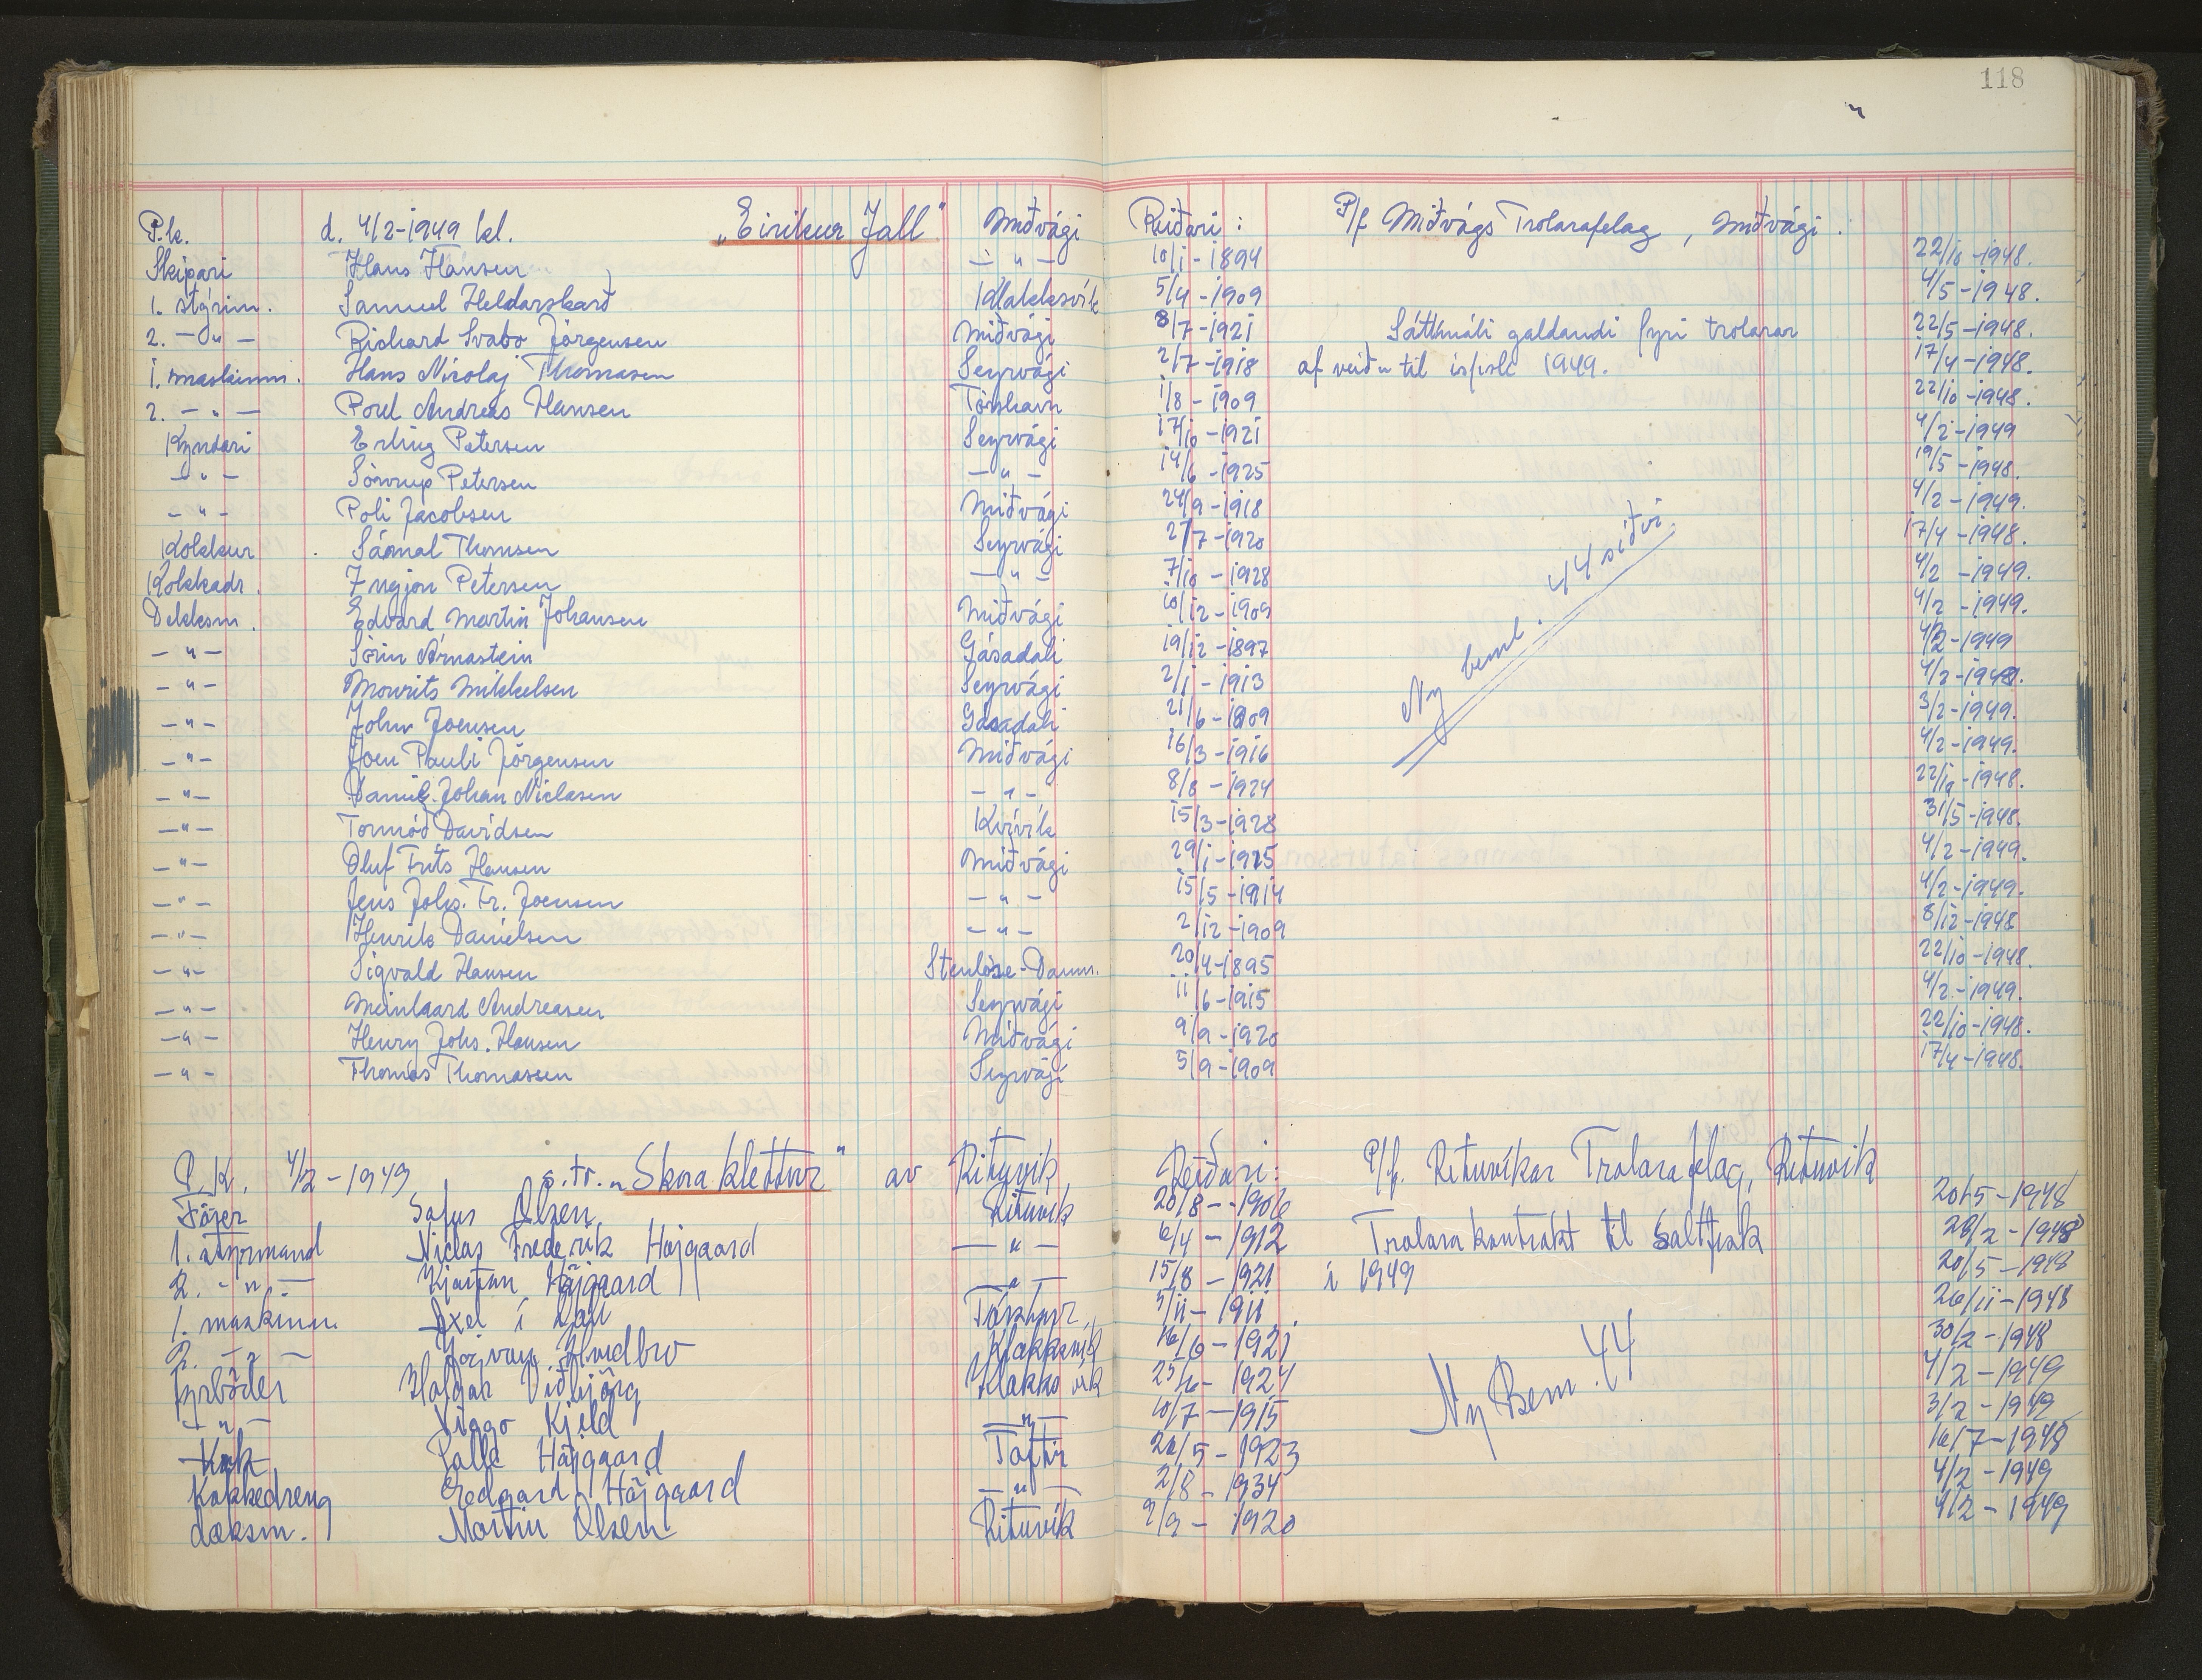 118
P.k. d. 4/2-1949 kl. „Eirikur Jall" Miðvági Reiðari: P/f Miðvágs Trolarafelag, Miðvági.
Skipari Hans Hansen — " — 10/1-1894 22/10-1948.
1. stýrim. Samuel Heldarskarð Klakksvík 5/4-1909 4/5-1948.
2. — " — Richard Svabo Jörgensen Miðvági 8/7-1921 Sáttmáli galdandi fyri trolarar 22/5-1948.
1. maskinm. Hans Nicolaj Thomasen Seyrvági 2/7-1918 af veiðu til ísfisk 1949. 17/4-1948.
2. — " — Poul Andreas Hansen Tórshavn 1/8-1909 22/10-1948.
Kyndari Erling Petersen Seyrvági 17/10-1921 4/2-1949
— " — Sörvrup Petersen — " — 14/6-1925 19/5-1948.
— " — Poli Jacobsen Miðvági 24/9-1918 4/2-1949.
Kokkur Sámal Thomsen Seyrvági 27/7-1920 17/4-1948.
Kokkadr. Ingjon Petersen — " — 7/10-1928 4/2-1949.
Dekksm. Edvard Martin Johansen Miðvági 10/12-1909 4/2-1949.
— " — Sörin Arnastein Gásadali 19/12-1897 4/2-1949
— " — Mourits Mikkelsen Seyrvági 2/1-1913 4/2-1949.
— " — John Joensen Gásadali 21/6-1909 3/2-1949.
— " — Joen Pauli Jörgensen Miðvági 16/3-1916 4/2-1949.
— " — Daniel Johan Niclasen — " — 8/8-1924 22/10-1948.
— " — Tormóð Davidsen Kvívík 15/3-1928 31/5-1948.
— " — Oluf Frits Hansen Miðvági 29/1-1925 4/2-1949.
— " — Jens Johs. Fr. Joensen — " — 15/5-1914 4/2-1949.
— " — Henrik Danielsen — " — 2/12-1909 8/12-1948
— " — Sigvald Hansen Stenlöse-Danm. 20/4-1895 22/10-1948.
— " — Meinhaard Andreasen Seyrvági 11/6-1915 4/2-1949.
— " — Henry Johs. Hansen Miðvági 9/9-1920 22/10-1948.
— " — Thomas Thomassen Seyrvági 5/9-1909 17/4-1948.
Ny bemt. 44 siðvi
P.K. 4/2-1949 s.tr. „Skoraklettur" av Rituvik, Reiðari: P/f. Rituvikar Trolarafelag, Rituvik
Förer Sofus Olsen Rituvik 20/8-1906 20/5-1948
1. styrmand Niclas Frederik Højgaard — " — 6/4-1912 Trolara kontrakt til Saltfisk 28/2-1948
2. — " — Kjartan Højgaard — " — 15/8-1921 i 1949 20/5-1948
1. maskinm. Axel í Dali Tórshavn 5/11-1911. 26/11-1948
2. — " — Klakksvík 16/6-1921 30/2-1948
fyrböder Holgar Viðbjörg Klakksvik 25/6-1924 4/2-1949
— " — Viggo Kjeld — " — 10/7-1915 3/2-1949
Kok Palle Højgaard Toftir 26/5-1923 Ny Bem. 44 16/7-1948
Kokkedreng Edgard Højgaard — " — 2/8-1934 4/2-1949
dæksm. Martin Olsen Rituvik 9/9-1920 4/2-1949